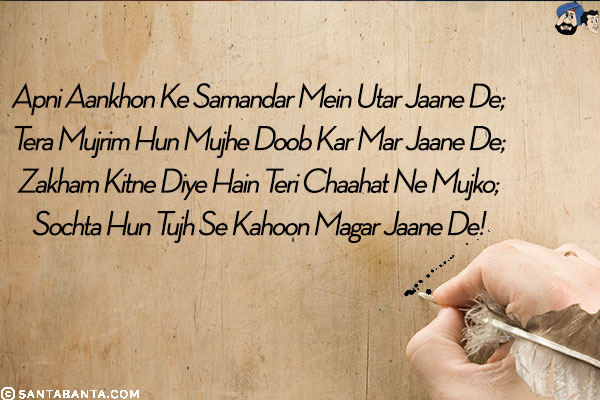 Apni Aankhon Ke Samandar Mein Utar Jaane De;
Tera Mujrim Hun Mujhe Doob Kar Mar Jaane De;
Zakham Kitne Diye Hain Teri Chaahat Ne Mujko;
Sochta Hun Tujh Se Kahoon Magar Jaane De!
© SANTABANTA.COM